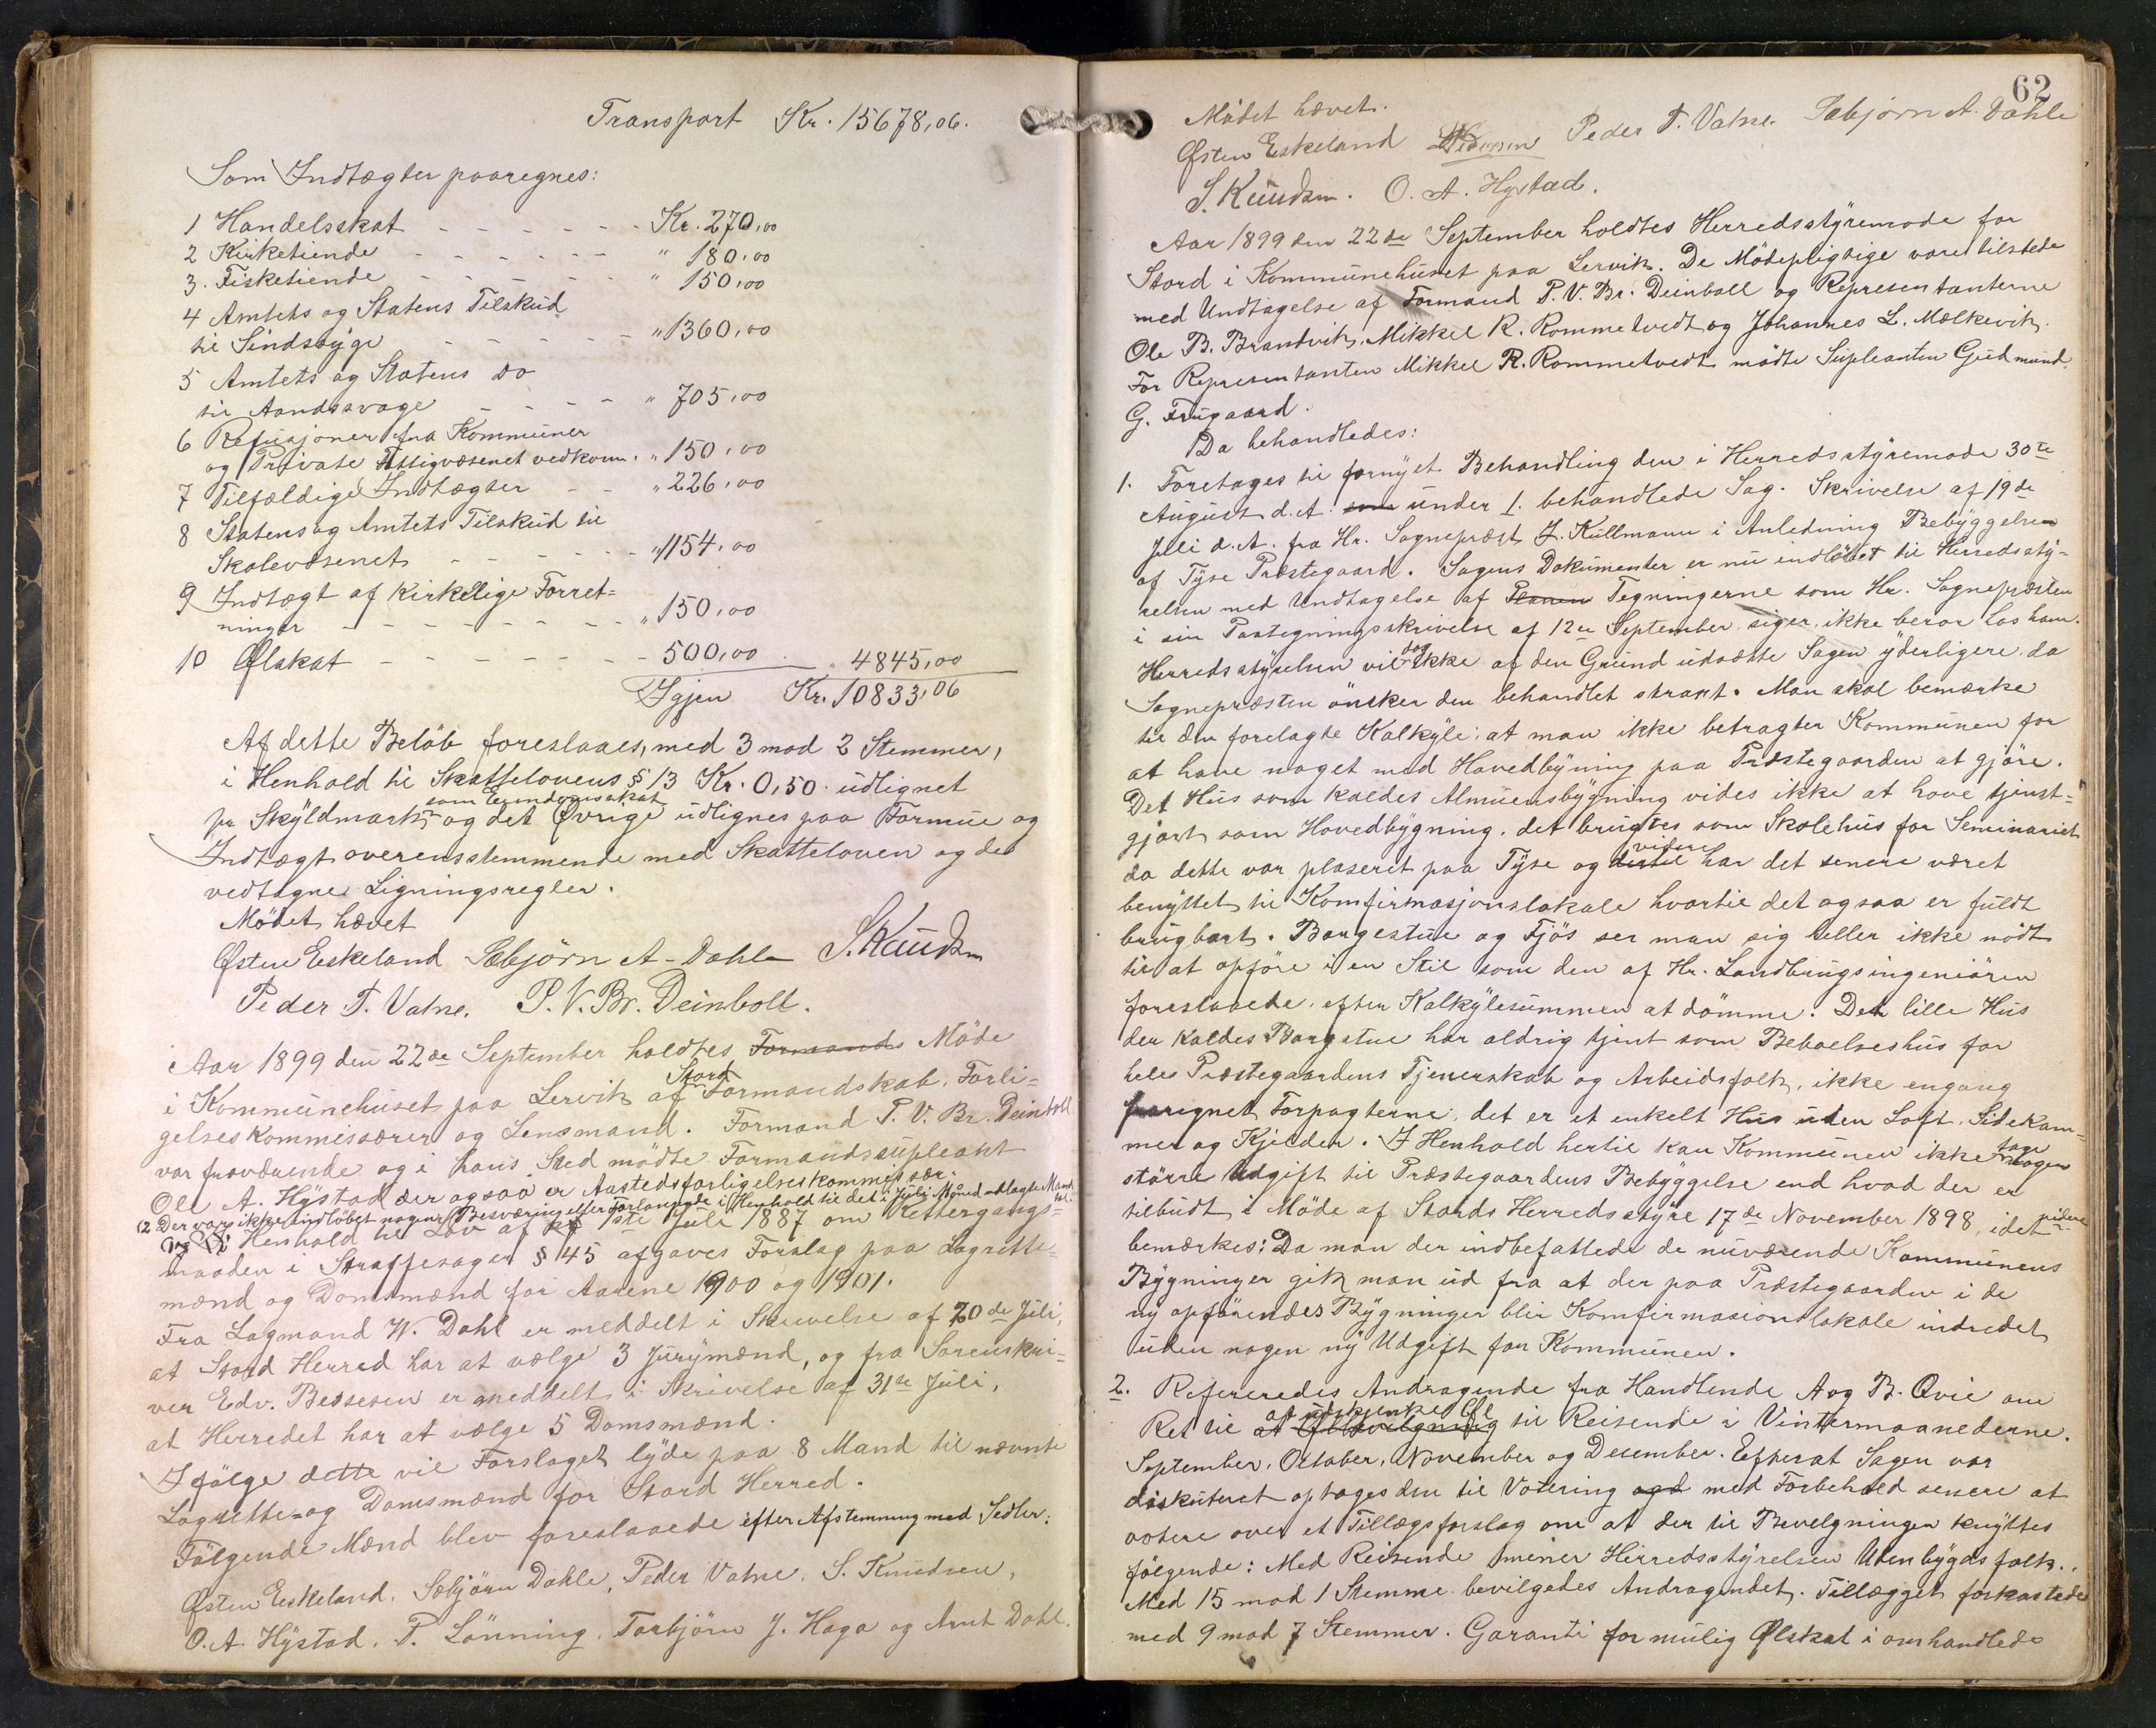 Transport Kr. 15678,06.
Som Indtægter paaregnes:
1 Handelsskat - - - - - - Kr. 270,00
2 Kirketiende - - - - - - " 180,00
3. Fisketiende - - - - - - " 150,00
4 Amtets og Statens Tilskud
til Sindssyge - - - - - "1360,00
5 Amtets og Statens do
til Aandssvage - - - - " 705,00
6 Refusjoner fra Kommuner
og Private Fattigvæsenet vedkom. " 150,00
7 Tilfældige Indtægter - - " 226,00
8 Statens og Amtets Tilskud til
Skolevæsenet - - - - - "1154,00
9 Indtægt af Kirkelige Forret=
ninger - - - - - - - " 150,00
10 Ølskat - - - - - - - 500,00 " 4845,00
Igjen Kr. 10833,06
Af dette Beløb foreslaaes, med 3 mod 2 Stemmer,
i Henhold til Skattelovens § 13 Kr. 0,50 udlignet
som Eiendomsskat
pr Skyldmark og det Øvrige udlignes paa Formue og
Indtægt overensstemmende med Skatteloven og de
vedtagne Ligningsregler.
Mödet hævet
Østen Eskeland Sæbjörn A. Dahle S. Knudsen
Peder T. Vatne. P. V. Br. Deinboll.
Aar 1899 den 22de September holdtes Formands Möde
i Kommunehuset paa Lervik af Stord Formandskab, Forli=
gelseskommissærer og Lensmand. Formand P. V. Br. Deinboll
var fraværende og i hans Sted mödte Formandssupleant
Ole A. Hÿstad der ogsaa er Aastedsforligelseskommissær.
(2 Der var ikke indløbet nogen Besværing eller Forlangende i Henhold til det i Juli Maaned udlagte Mandtal.
I Henhold til Lov af 1ste Juli 1887 om Rettergangs=
maaden i Straffesager § 45 afgaves Forslag paa Lagrette=
mænd og Domsmænd for Aarene 1900 og 1901.
Fra Lagmand W. Dahl er meddelt i Skrivelse af 20de Juli,
at Stord Herred har at vælge 3 Jurymænd, og fra Sorenskri=
ver Edv. Bessesen er meddelt i Skrivelse af 31te Juli,
at Herredet har at vælge 5 Domsmænd.
Ifölge dette vil Forslaget lyde paa 8 Mand til nævnte
Lagrette= og Domsmænd for Stord Herred.
Fölgende Mænd blev foreslaaede efter Afstemning med Sedler:
Østen Eskeland, Sæbjörn Dahle, Peder Vatne, S. Knudsen,
O. A. Hÿstad, P. Lönning, Torbjörn J. Haga og Arnt Dahl.
62
Mödet hævet.
Østen Eskeland Peder T. Vatne. Sæbjørn A. Dahle
S. Knudsen. O. A. Hystad.
Aar 1899 den 22de September holdtes Herredsstyremöde for
Stord i Kommunehuset paa Lervik. De Mödepligtige vare tilstede
med Undtagelse af Formand P. V. Br. Deinboll og Representanterne
Ole B. Brandvik, Mikkel R. Rommetvedt og Johannes L. Mælkevik.
For Representanten Mikkel R. Rommetvedt mödte Supleanten Gudmund
G. Frugaard.
Da behandledes:
1. Foretages til fornyet Behandling den i Herredsstyremöde 30te
August d. A. som under 1. behandlede Sag. Skrivelse af 19de
Juli d. A. fra Hr. Sognepræst J. Kullmann i Anledning Bebyggelsen
af Tyse Præstegaard. Sagens Dokumenter er nu indlöbet til Herredssty-
relsen med Undtagelse af Planen Tegningerne som Hr. Sognepræsten
i sin Paategningsskrivelse af 12te September siger, ikke beror hos ham.
Herredsstyrelsen vil dog ikke af den Grund udsætte Sagen yderligere, da
Sognepræsten önsker den behandlet straxt. Man skal bemærke
til den forelagte Kalkyle: at man ikke betragter Kommunen for
at have noget med Hovedbyning paa Præstegaarden at gjöre.
Det Hus som kaldes Almuensbygning vides ikke at have tjenst=
gjort som Hovedbygning, det brugtes som Skolehus for Seminariet
da dette var plaseret paa Tyse og videre har det senere været
benyttet til Komfirmasjonslokale hvortil det ogsaa er fuldt
brugbart. Borgestue og Fjös ser man sig heller ikke nödt
til at opföre i en Stil som den af Hr. Landbrugsingeniören
foreslaaede, efter Kalkylesummen at dömme. Det lille Hus
der kaldes Borgstue har aldrig tjent som Beboelseshus for
hele Præstegaardens Tjenerskab og Arbeidsfolk, ikke engang
fraregnet Forpagterne, det er et enkelt Hus uden Loft, Sidekam=
mer og Kjelder. I Henhold hertil kan Kommunen ikke tage nogen
större Udgift til Præstegaardens Bebyggelse end hvad der er
tilbudt i Möde af Stords Herredsstyre 17de November 1898, idet videre
bemærkes: Da man der indbefattede de nuværende Kommunens
Bygninger gik man ud fra at der paa Præstegaarden i de
ny opförendes Bygninger blir Komfirmasionslokale indredet
uden nogen ny Udgift for Kommunen.
2. Refereredes Andragende fra Handlende A og B. Qvie om
at udskjenke Øl
Ret til at Ølbevilgning til Reisende i Vintermaanederne.
September, October, November og December. Efterat Sagen var
diskuteret optoges den til Votering med Forbehold senere at
votere over et Tillægsforslag om at der til Bevelgningen knyttes
fölgende: Med Reisende mener Herredsstyrelsen Udenbygdsfolk.
Med 15 mod 1 Stemme bevilgedes Andragendet. Tillægget forkastedes
med 9 mod 7 Stemmer. Garanti for mulig Ølskat i omhandlede